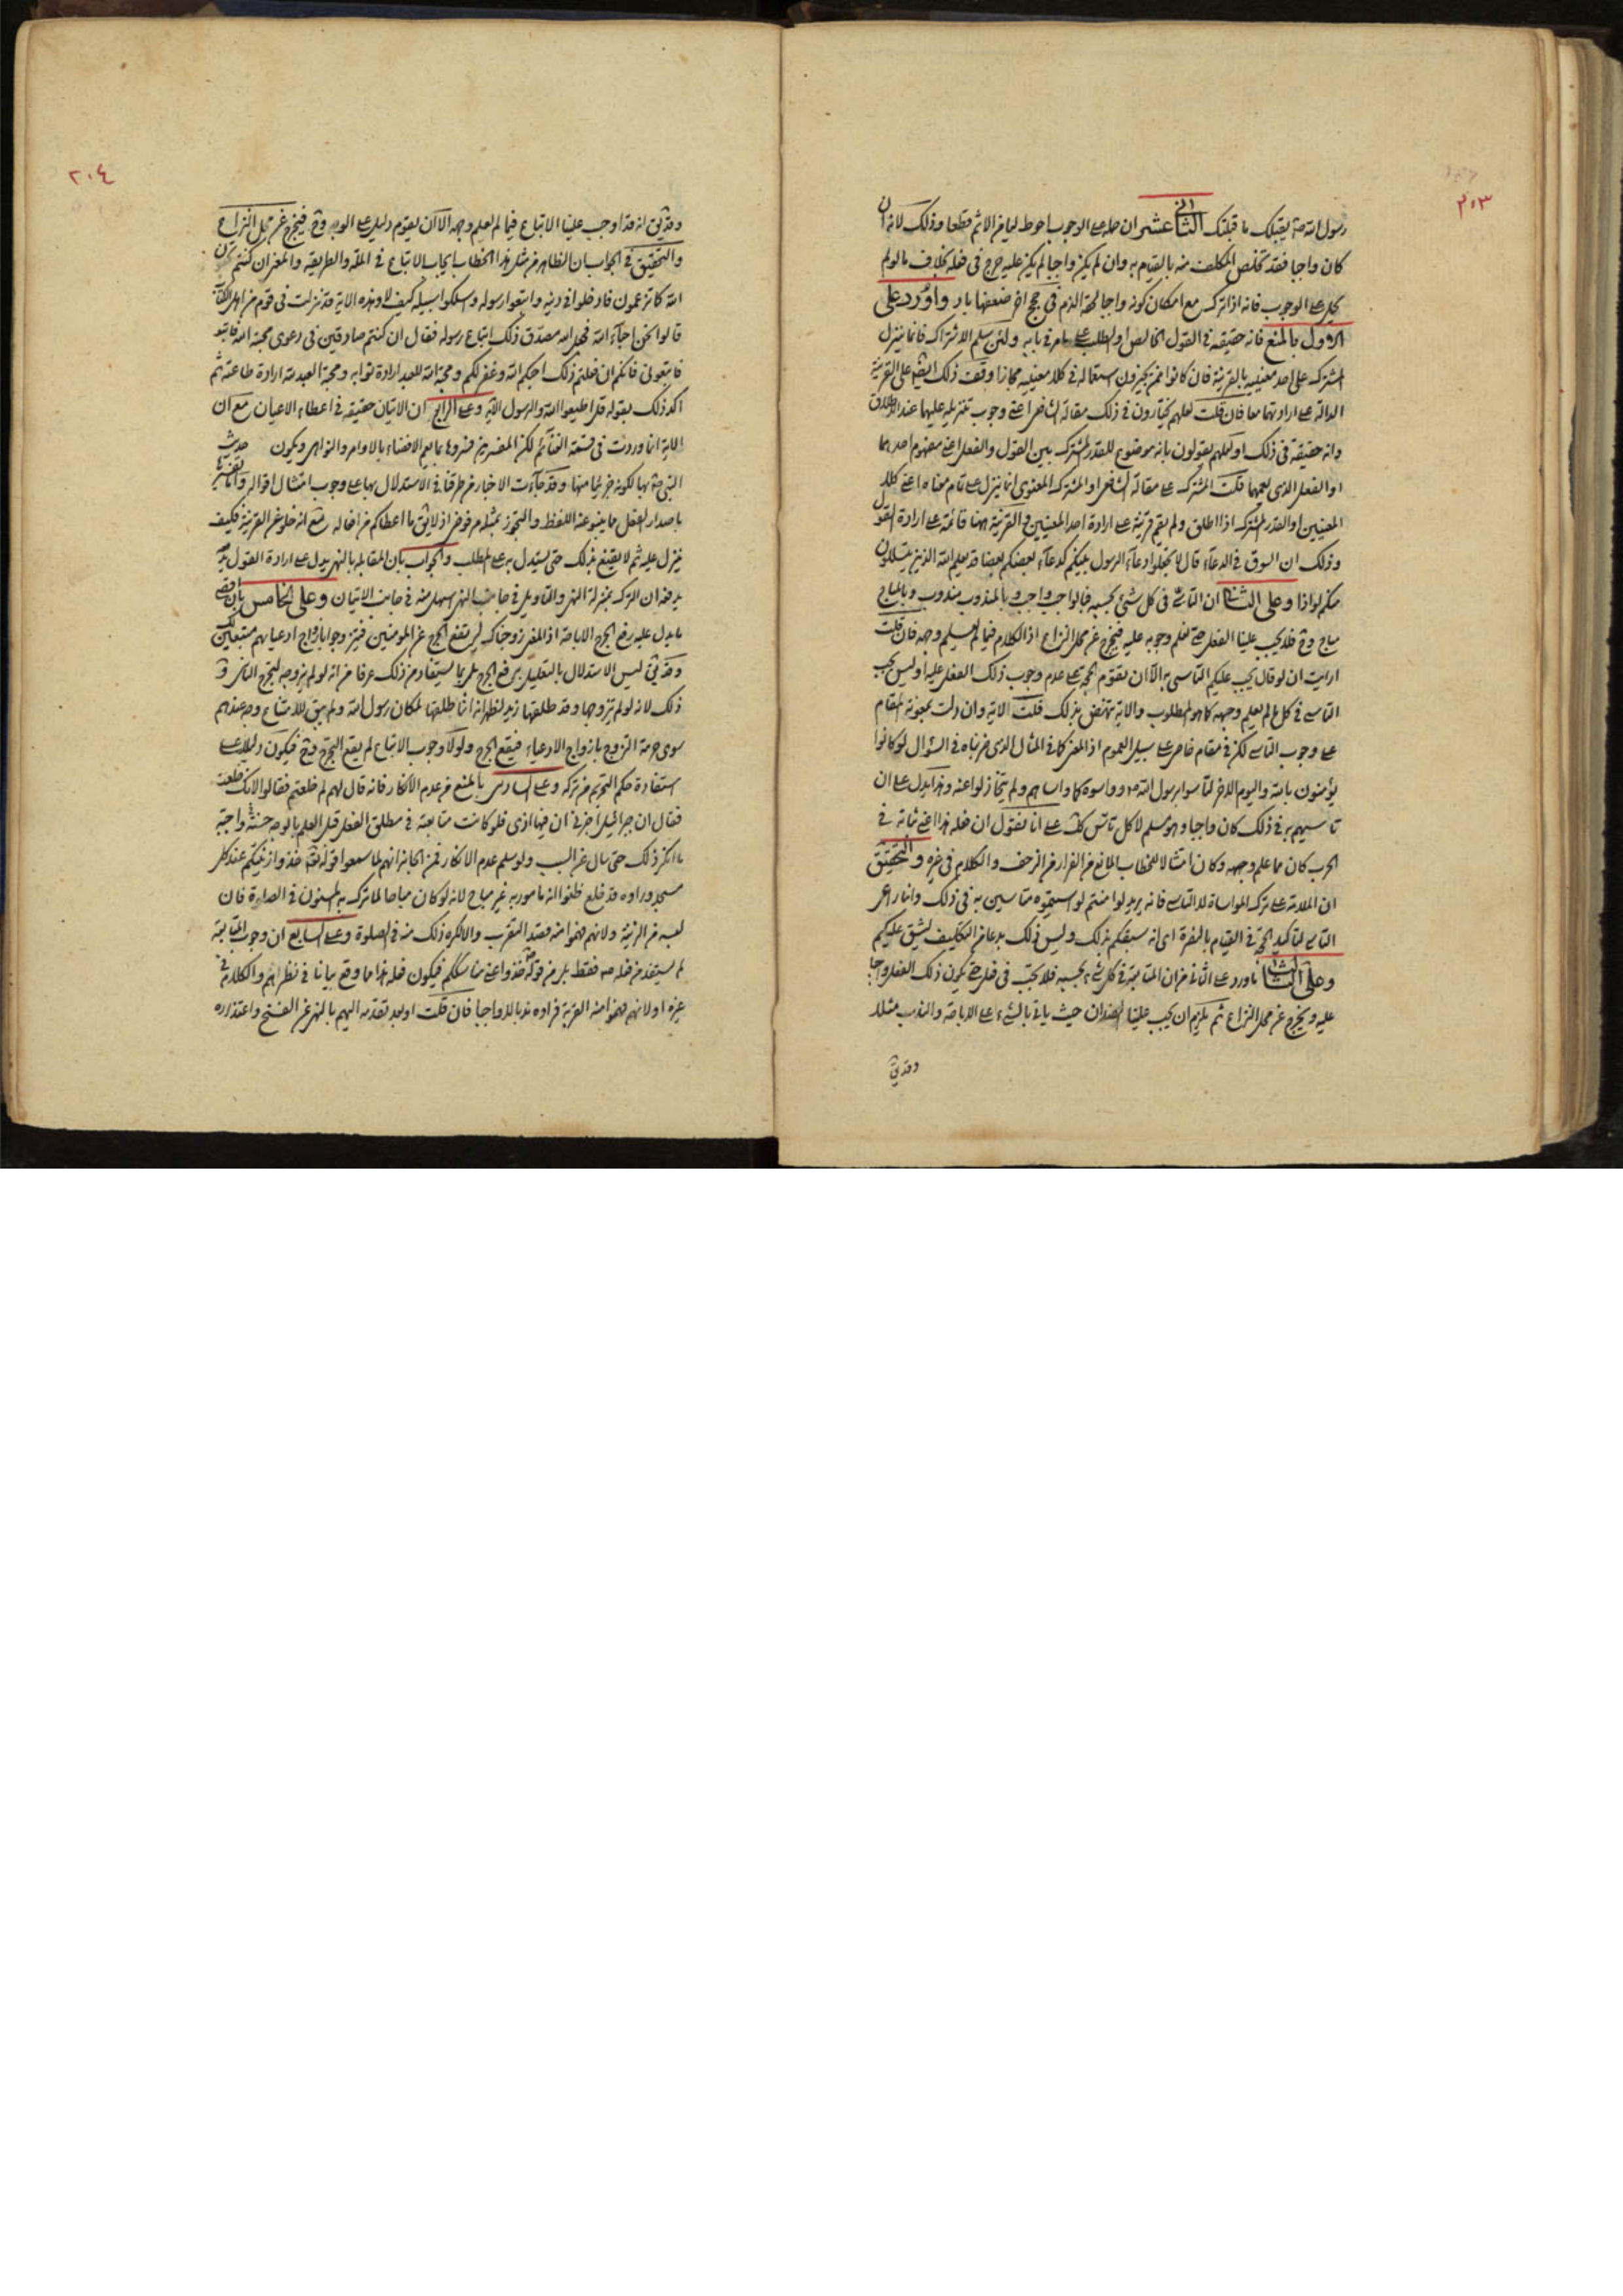 ٢٠٣
رسول الله صه يقبلك ما قبلتك الثاني عشر ان حمله على الوجوب احوط لما فيه من الاثم قطعا وذلك لانه ان
كان واجبا فقد تخلص المكلف منه بالقيام به وان لم يكن واجبا لم يكن عليه حرج في فعله بخلاف ما لو لم
يحمل على الوجوب فانه اذا ترك مع امكان كونه واجبا لحقه الذم في حجج اخر ضعفها باد واورد على
الاول بالمنع فانه حقيقة في القول الخاص والطلب على ما مر في بابه ولئن سلم الاشتراك فانما ينزل
المشترك على احد معنييه بالقرينة فان كانوا ممن يجيزون استعماله في كلا معنييه مجازا وقف ذلك ايضا على القرينة
الدالة على ارادتهما معا فان قلت لعلهم يختارون في ذلك مقالة الشافعي اعني وجوب تنزيله عليهما عند الاطلاق
وانه حقيقة في ذلك او لعلهم يقولون بانه موضوع للقدر المشترك بين القول والفعل اعني مفهوم احدهما
او الفعل الذي يعمهما قلت المشترك على مقالة الشافعي او المشترك المعنوي انما ينزل على تمام معناه اعني كلا
المعنيين او القدر المشترك اذا اطلق ولم يقم قرينة على ارادة احد المعنيين والقرينة ههنا قائمة على ارادة القول
وذلك ان السوق في الدعاء قال لا تجعلوا دعاء الرسول بينكم كدعاء بعضكم بعضا قد يعلم الله الذين يتسللون
منكم لواذا وعلى الثاني ان التاسي في كل شيء بحسبه فبالواجب واجب وبالمندوب مندوب وبالمباح
مباح وح فلا يجب علينا الفعل حتى نعلم وجوبه عليه فيخرج عن محل النزاع اذ الكلام فيما لم يعلم وجهه فان قلت
ارايت ان لو قال يجب عليكم التاسي به الا ان تقوم الحجة على عدم وجوب ذلك الفعل عليه اوليس يجب
التاسي في كل ما لم يعلم وجهه كما هو المطلوب والاية تنهض بذلك قلت الاية وان دلت بمعونة المقام
على وجوب التاسي لكن في مقام خاص على سبيل العموم اذ المغزى كما في المثال الذي ضربناه في السؤال لو كانوا
يؤمنون بالله واليوم الاخر لتاسوا برسول الله صه وواسوه كما واساهم ولم يتخاذلوا عنه وهذا يدل على ان
تاسيهم به في ذلك كان واجبا وهو مسلم لا كل تاس على انا نقول ان فعله هذا اعني ثباته في
الحرب كان مما علم وجهه وكان امتثالا للخطاب المانع من الفرار من الزحف والكلام في غيره والتحقيق
ان الملامة على ترك المواساة لا التاسي فانه يريد لو امنتم لواسيتموه متاسين به في ذلك وانما راعى
التاسي لتاكيد الحجة في القيام بالنصرة اي انه سبقكم بذلك وليس ذلك بدعا من التكليف ليشق عليكم
وعلى الثالث ما ورد على الثاني من ان المتابعة في كل شيء بحسبه فلا يجب في فعل حتى يكون ذلك الفعل واجبا
عليه ويخرج عن محل النزاع ثم يلزم ان يجب علينا الضدان حيث ياتي بالشيء على الاباحة والندب مثلا
وقد يق
٢٠٤
وقد يق انه قد اوجب علينا الاتباع فيما لم يعلم وجهه الا ان يقوم دليل على الوجه وح فيخرج عن محل النزاع
والتحقيق في الجواب ان الظاهر من مثل هذا الخطاب ايجاب الاتباع في الملة والطريقة والمغزى ان كنتم تحبون
الله كما تزعمون فادخلوا في دينه واتبعوا رسوله واسلكوا سبيله كيف لا وهذه الاية قد نزلت في قوم من اهل الكتاب
قالوا نحن احباء الله فجعل الله مصدق ذلك اتباع رسوله فقال ان كنتم صادقين في دعوى محبة الله فاتبعوني
فاتبعوني فانكم ان فعلتم ذلك احبكم الله وغفر لكم ومحبة الله للعبد ارادة ثوابه ومحبة العبد لله ارادة طاعته ثم
اكد ذلك بقوله قل اطيعوا الله والرسول الاية وعلى الرابع ان الاتيان حقيقة في اعطاء الاعيان مع ان
الاية انما وردت في قسمة الغنائم لكن المفسرين فسروها بما يعم الافضاء بالاوامر والنواهي ويكون حديث
النبي صه بها لكونه جزئيا منها وقد جاءت الاخبار من طرقنا في الاستدلال بها على وجوب امتثال اقواله واما تفسيرها
باصدار الفعل مما ينبو عنه اللفظ والتجوز بمثله مرفوض اذ لا يق ما اعطاكم من افعاله مع انه خلو عن القرينة فكيف
ينزل عليه ثم لا يقنع بذلك حتى يستدل به على المطلب والجواب بان المقابلة بالنهي يدل على ارادة القول
يدفعه ان الترك بمنزلة النهي والتاويل في جانب النهي اسهل منه في جانب الاتيان وعلى الخامس بان اقصى
ما يدل عليه رفع الحرج الاباحة اذ المغزى زوجناكها ليرتفع الحرج عن المؤمنين فيتزوجوا بازواج ادعيائهم متبعين لك
وقد يق ليس الاستدلال بالتعليل برفع الحرج بل بما يستفاد من ذلك عرفا من انه لو لم يزوجه لتحرج الناس في
ذلك لانه لو لم يتزوجها وقد طلقها زيد لظهر انه انما طلقها لمكان رسول الله ولم يبق للامتناع وجه عندهم
سوى حرمة التزوج بازواج الادعياء فيقع الحرج ولولا وجوب الاتباع لم يقع التحرج وح فيكون دليلا على
استفادة حكم التحريم من تركه وعلى السادس بالمنع من عدم الانكار فانه قال لهم لم خلعتم فقالوا لانك خلعت
فقال ان جبرائيل اخبرني ان فيها اذى فلو كانت متابعته في مطلق الفعل قبل العلم بالوجه حسنة او واجبة
ما انكر ذلك حتى سال عن السبب ولو سلم عدم الانكار فمن الجائز انهم لما سمعوا قوله تعه خذوا زينتكم عند كل
مسجد وراوه قد خلع ظنوا انه مامور به غير مباح لانه لو كان مباحا لما ترك به المسنون في الصلوة فان
لبسه من الزينة ولانهم فهموا منه قصد التقرب والا لكره ذلك منه في الصلوة وعلى السابع ان وجوب المتابعة
لم يستفد من فعله صه فقط بل من قوله صه خذوا عني مناسككم فيكون فعله هذا مما وقع بيانا في نظرهم والكلام في
غيره او لانهم فهموا منه القربة فراوه ندبا لا واجبا فان قلت اوبعد تقدمه اليهم بالنهي عن الفسخ واعتذاره